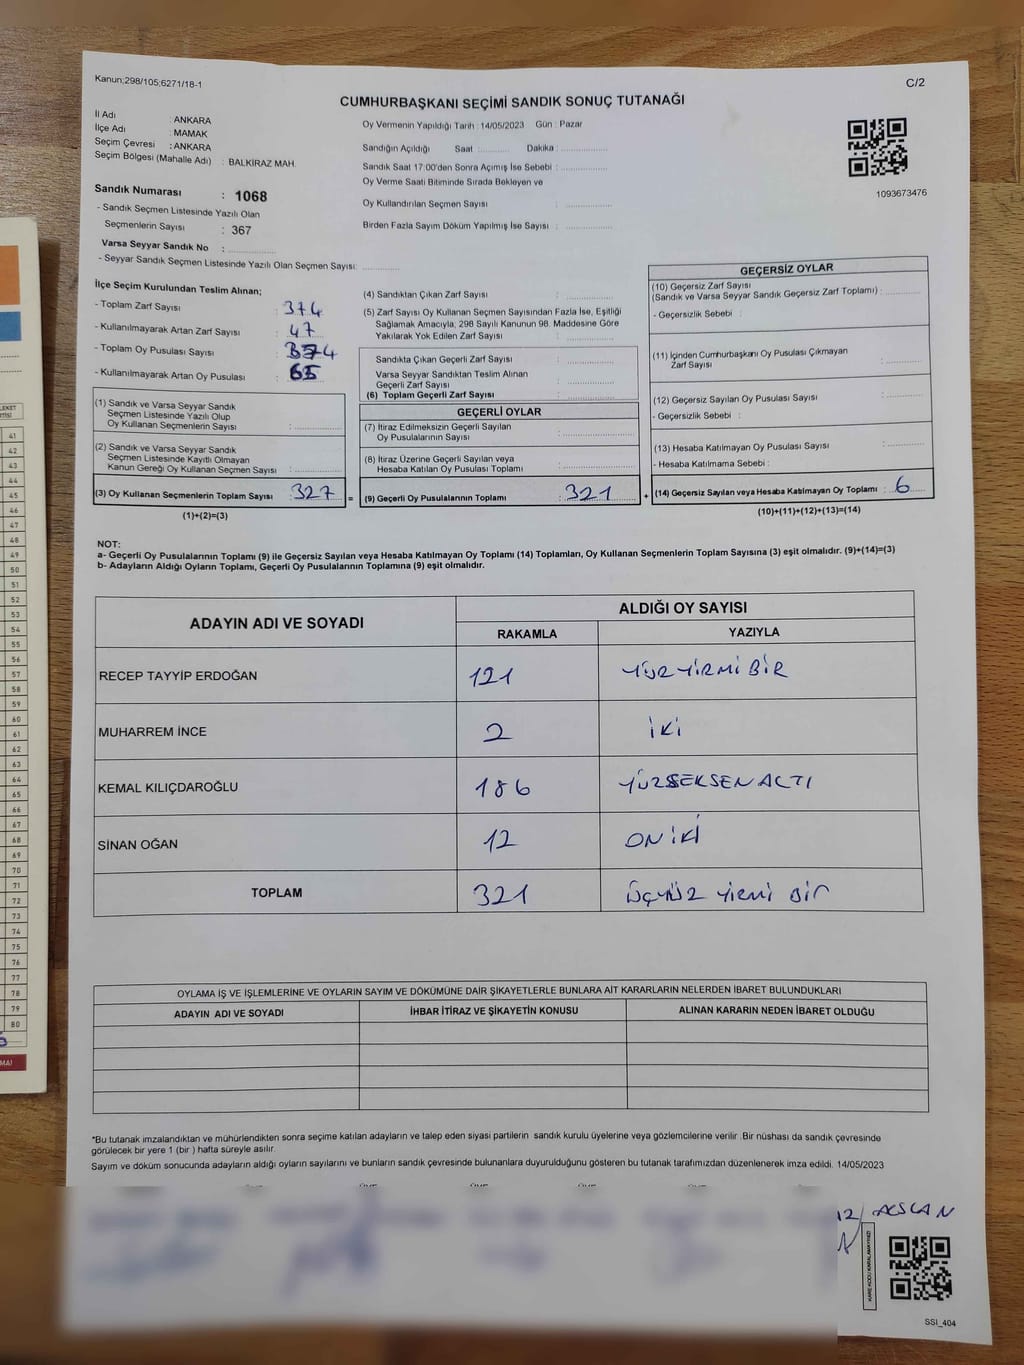 Kanun;298/105;6271/18-1
C/2
CUMHURBAŞKANI SEÇİMİ SANDIK SONUÇ TUTANAĞI
İl Adı : ANKARA
İlçe Adı : MAMAK
Seçim Çevresi : ANKARA
Seçim Bölgesi (Mahalle Adı) : BALKİRAZ MAH.
Sandık Numarası : 1068
- Sandık Seçmen Listesinde Yazılı Olan
Seçmenlerin Sayısı : 367
Varsa Seyyar Sandık No : ..............
- Seyyar Sandık Seçmen Listesinde Yazılı Olan Seçmen Sayısı: ............
Oy Vermenin Yapıldığı Tarih : 14/05/2023 Gün : Pazar
Sandığın Açıldığı Saat : .......... Dakika : ..............
Sandık Saat 17:00'den Sonra Açımış İse Sebebi : ..............
Oy Verme Saati Bitiminde Sırada Bekleyen ve
Oy Kullandırılan Seçmen Sayısı : ..............
Birden Fazla Sayım Döküm Yapılmış İse Sayısı : ..............
1093673476
İlçe Seçim Kurulundan Teslim Alınan;
- Toplam Zarf Sayısı : 374
- Kullanılmayarak Artan Zarf Sayısı : 47
- Toplam Oy Pusulası Sayısı : 374
- Kullanılmayarak Artan Oy Pusulası : 65
(1) Sandık ve Varsa Seyyar Sandık
Seçmen Listesinde Yazılı Olup
Oy Kullanan Seçmenlerin Sayısı : ..............
(2) Sandık ve Varsa Seyyar Sandık
Seçmen Listesinde Kayıtlı Olmayan
Kanun Gereği Oy Kullanan Seçmen Sayısı : ..............
(3) Oy Kullanan Seçmenlerin Toplam Sayısı : 327 =
(1)+(2)=(3)
(4) Sandıktan Çıkan Zarf Sayısı : ..............
(5) Zarf Sayısı Oy Kullanan Seçmen Sayısından Fazla İse, Eşitliği
Sağlamak Amacıyla, 298 Sayılı Kanunun 98. Maddesine Göre
Yakılarak Yok Edilen Zarf Sayısı : ..............
Sandıkta Çıkan Geçerli Zarf Sayısı : ..............
Varsa Seyyar Sandıktan Teslim Alınan
Geçerli Zarf Sayısı : ..............
(6) Toplam Geçerli Zarf Sayısı : ..............
GEÇERLİ OYLAR
(7) İtiraz Edilmeksizin Geçerli Sayılan
Oy Pusulalarının Sayısı : ..............
(8) İtiraz Üzerine Geçerli Sayılan veya
Hesaba Katılan Oy Pusulası Toplamı : ..............
(9) Geçerli Oy Pusulalarının Toplamı : 321 +
GEÇERSİZ OYLAR
(10) Geçersiz Zarf Sayısı
(Sandık ve Varsa Seyyar Sandık Geçersiz Zarf Toplamı) : ..........
- Geçersizlik Sebebi :
(11) İçinden Cumhurbaşkanı Oy Pusulası Çıkmayan
Zarf Sayısı : ..........
(12) Geçersiz Sayılan Oy Pusulası Sayısı : ..........
- Geçersizlik Sebebi :
(13) Hesaba Katılmayan Oy Pusulası Sayısı : ..........
- Hesaba Katılmama Sebebi :
(14) Geçersiz Sayılan veya Hesaba Katılmayan Oy Toplamı : 6
(10)+(11)+(12)+(13)=(14)
NOT:
a- Geçerli Oy Pusulalarının Toplamı (9) ile Geçersiz Sayılan veya Hesaba Katılmayan Oy Toplamı (14) Toplamları, Oy Kullanan Seçmenlerin Toplam Sayısına (3) eşit olmalıdır. (9)+(14)=(3)
b- Adayların Aldığı Oyların Toplamı, Geçerli Oy Pusulalarının Toplamına (9) eşit olmalıdır.
ADAYIN ADI VE SOYADI ALDIĞI OY SAYISI
RAKAMLA YAZIYLA
RECEP TAYYİP ERDOĞAN 121 YÜZ YİRMİ BİR
MUHARREM İNCE 2 İKİ
KEMAL KILIÇDAROĞLU 186 YÜZSEKSENALTI
SİNAN OĞAN 12 ON İKİ
TOPLAM 321 ÜÇYÜZ YİRMİ BİR
OYLAMA İŞ VE İŞLEMLERİNE VE OYLARIN SAYIM VE DÖKÜMÜNE DAİR ŞİKAYETLERLE BUNLARA AİT KARARLARIN NELERDEN İBARET BULUNDUKLARI
ADAYIN ADI VE SOYADI İHBAR İTİRAZ VE ŞİKAYETİN KONUSU ALINAN KARARIN NEDEN İBARET OLDUĞU
*Bu tutanak imzalandıktan ve mühürlendikten sonra seçime katılan adayların ve talep eden siyasi partilerin sandık kurulu üyelerine veya gözlemcilerine verilir .Bir nüshası da sandık çevresinde
görülecek bir yere 1 (bir ) hafta süreyle asılır.
Sayım ve döküm sonucunda adayların aldığı oyların sayılarını ve bunların sandık çevresinde bulunanlara duyurulduğunu gösteren bu tutanak tarafımızdan düzenlenerek imza edildi. 14/05/2023
ASLAN
KARE KODU KARALAMAYINIZ!
SSI_404
41
42
43
44
45
46
47
48
49
50
51
52
53
54
55
56
57
58
59
60
61
62
63
64
65
66
67
68
69
70
71
72
73
74
75
76
77
78
79
80